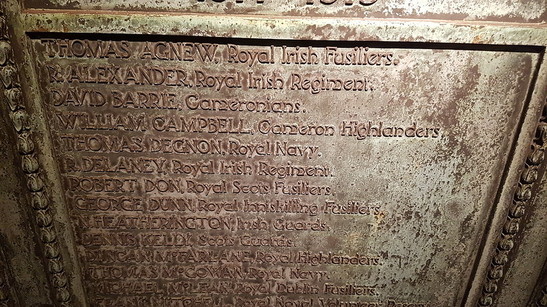 THOMAS AGNEW, Royal Irish Fusiliers.
R. ALEXANDER, Royal Irish Regiment.
DAVID BARRIE, Cameronians.
WILLIAM CAMPBELL, Cameron Highlanders.
THOMAS DEGNON, Royal Navy.
P. DELANEY, Royal Irish Regiment.
ROBERT DON, Royal Scots Fusiliers.
GEORGE DUNN, Royal Inniskilling Fusiliers.
HEATHERINGTON, Irish Guards.
DENNIS KELLY, Scots Guards.
DUNCAN McFARLANE, Royal Highlanders.
THOMAS McGOWAN, Royal Navy.
MICHAEL McLEAN, Royal Dublin Fusiliers.
Royal Naval Volunteer